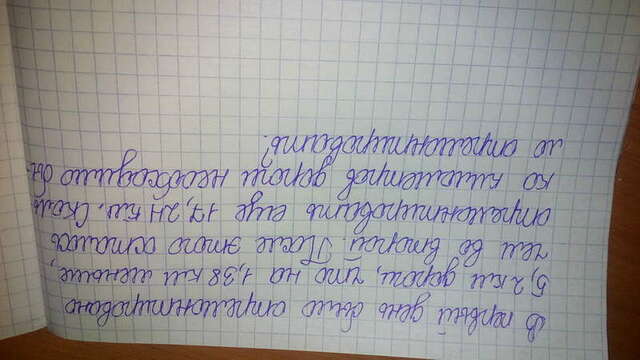 В первый день было отремонтировано
5,2 км дороги, что на 1,38 км меньше,
чем во второй. После этого осталось
отремонтировать еще 17,24 км. Сколь
ко километров дороги необходимо бы-
ло отремонтировать?